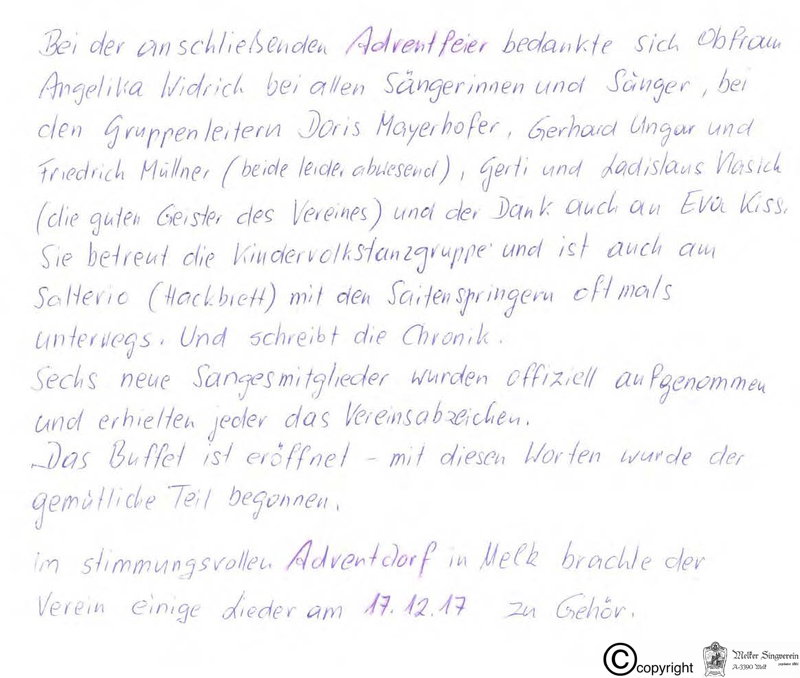 Bei der anschließenden Adventfeier bedankte sich Obfrau
Angelika Widrich bei allen Sängerinnen und Sänger, bei
den Gruppenleitern Doris Mayerhofer, Gerhard Ungar und
Friedrich Müllner (beide leider abwesend), Gerti und Ladislaus Vlasich
(die guten Geister des Vereines) und der Dank auch an Eva Kiss.
Sie betreut die Kindervolkstanzgruppe und ist auch am
Salterio (Hackbrett) mit den Saitenspringern oftmals
unterwegs. Und schreibt die Chronik.
Sechs neue Sangesmitglieder wurden offiziell aufgenommen
und erhielten jeder das Vereinsabzeichen.
Das Buffet ist eröffnet – mit diesen Worten wurde der
gemütliche Teil begonnen.
Im stimmungsvollen Adventdorf in Melk brachte der
Verein einige Lieder am 17.12.17 zu Gehör.
©copyright Melker Singverein
A-3390 Melk